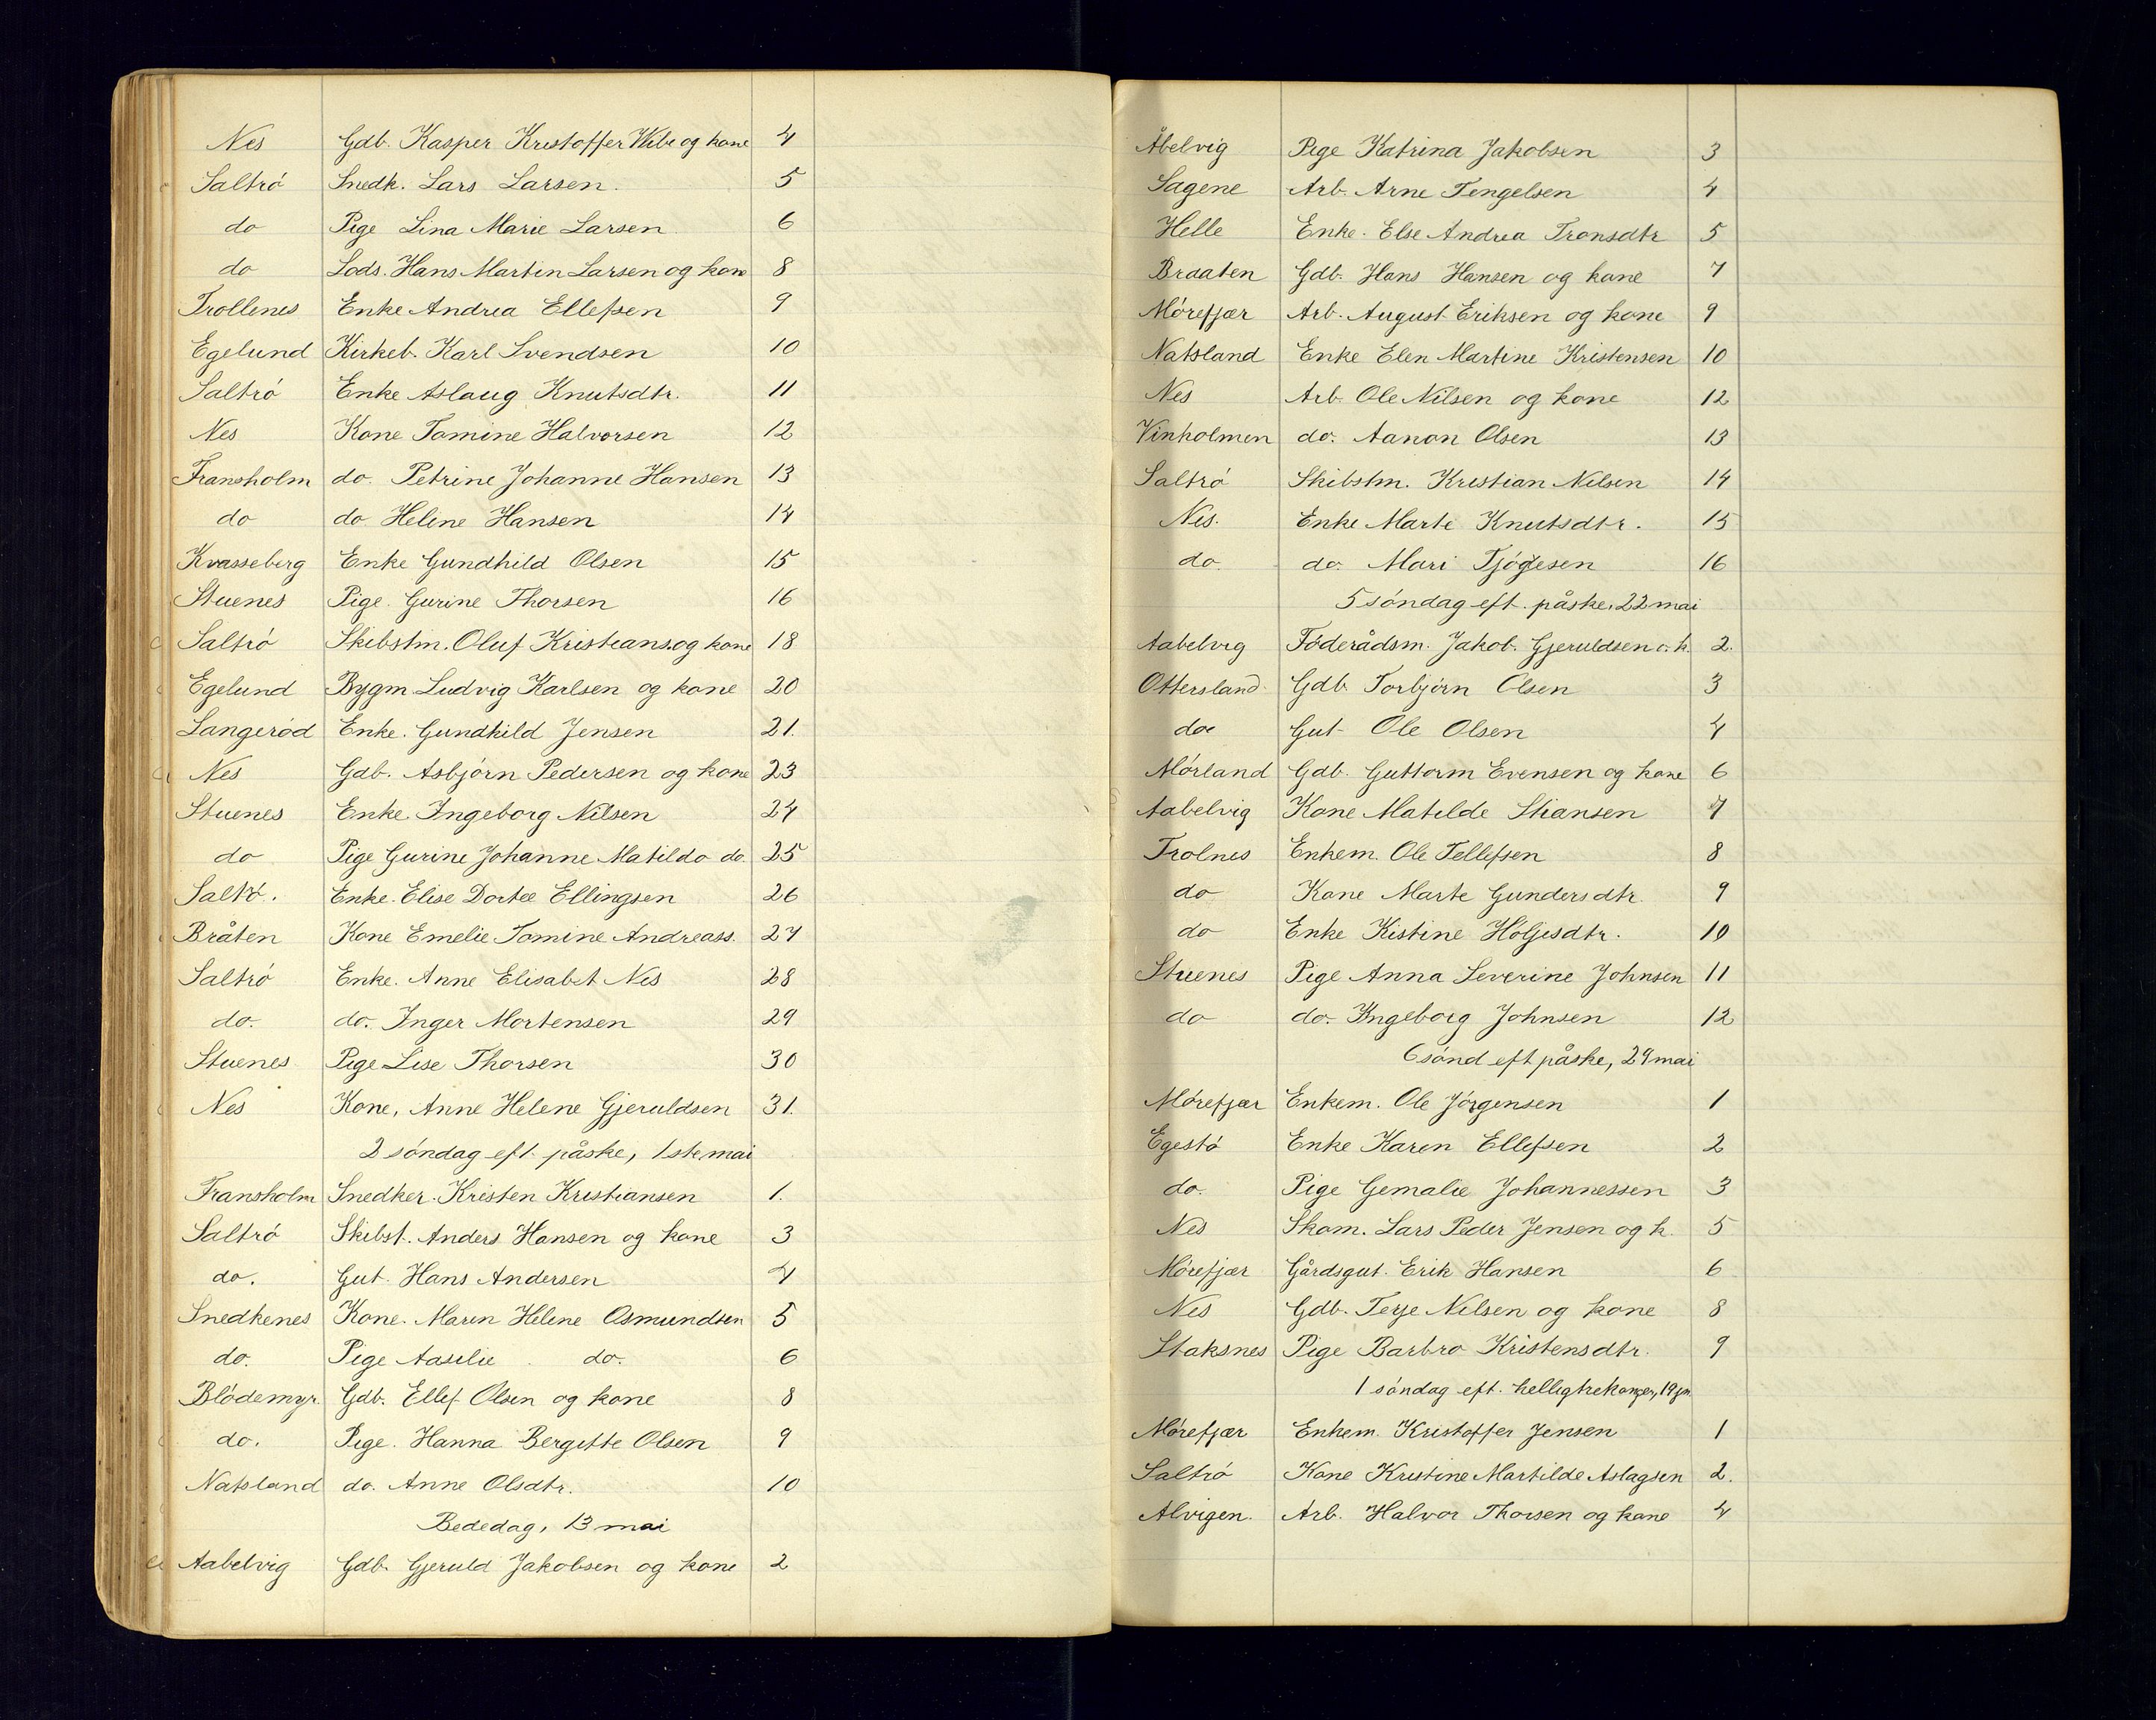 Nes Gdb. Kasper Kristoffer Wibe og kone 4
Saltró Snedk. Lars Larsen. 5
do Pige Lina Marie Larsen 6
do Lods. Hans Martin Larsen og kone 8
Trollenes Enke Andrea Ellefsen 9
Egelund Kirkeb. Karl Svendsen 10
Saltró Enke Aslaug Knutsdtr. 11
Nes Kone Tomine Halvorsen 12
Fransholm do. Petrine Johanne Hansen 13
do do Helene Hansen 14
Kvasseberg Enke Gundhild Olsen 15
Stuenes Pige. Gurine Thorsen 16
Saltró Skibstm. Oluf Kristians. og kone 18
Egelund Bygm Ludvig Karlsen og kone 20
Langeród Enke. Gundhild Jensen 21.
Nes Gdb. Asbjórn Pedersen og kone 23
Stuenes Enke. Ingeborg Nilsen 24
do Pige Gurine Johanne Matilda do. 25
Saltró. Enke. Elise Dortee Ellingsen 26
Bråten Kone Emelie Tomine Andreass. 27
Saltró Enke. Anne Elisabet Nes 28
do. do. Inger Mortensen 29
Stuenes Pige Lise Thorsen 30
Nes Kone, Anne Helene Gjeruldsen 31.
2 sóndag eft. påske, 1ste mai
Fransholm Snedker. Kristen Kristiansen 1.
Saltró Skibst. Anders Hansen og kone 3
do. Gut. Hans Andersen 4
Snedkenes Kone. Maren Helene Osmundsen 5
do. Pige Aasilie do. 6
Blódemyr. Gdb. Ellef Olsen og kone 8
do. Pige. Hanna Bergitte Olsen 9
Natsland do. Anne Olsdtr. 10
Bededag, 13 mai
Aabelvig Gdb. Gjeruld Jakobsen og kone 2
Åbelvig Pige Katrina Jakobsen 3
Sagene Arb. Arne Tengelsen 4
Helle Enke. Else Andrea Tronsdtr 5
Braaten Gdb. Hans Hansen og kone 7
Mórefjær Arb. August Eriksen og kone 9
Natsland Enke Elen Martine Kristensen 10
Nes Arb. Ole Nilsen og kone 12
Vinholmen do. Aanon Olsen 13
Saltró Skibstm. Kristian Nilsen 14
Nes. Enke Marte Knutsdtr. 15
do. do. Mari Tjógesen 16
5 sóndag eft. påske, 22 mai
Aabelvig Fóderådsm. Jakob. Gjeruldsen o. k. 2.
Ottersland Gdb. Torbjórn Olsen 3
do Gut Ole Olsen 4
Mórland Gdb. Guttorm Evensen og kone 6
Aabelvig Kone Matilde Stiansen 7
Trolnes Enkem. Ole Tellefsen 8
do Kone Marte Gundersdtr. 9
do Enke Kistine Holjesdtr. 10
Stuenes Pige Anna Severine Johnsen 11
do do. Ingeborg Johnsen 12
6 sónd eft påske, 29 mai
Mórefjær Enkem. Ole Jórgensen 1
Egestó Enke Karen Ellefsen 2
do. Pige Gemalie Johannessen 3
Nes Skom. Lars Peder Jensen og k. 5
Mórefjær Gårdsgut. Erik Hansen 6
Nes Gdb. Terje Nilsen og kone 8
Staksnes Pige Barbro Kristensdtr. 9
1 sóndag eft. helligtrekonger, 19 jn.
Mórefjær Enkem. Kristoffer Jensen 1
Saltró Kone Kristine Martilde Aslagsen 2.
Alvigen. Arb. Halvor Thorsen og kone 4